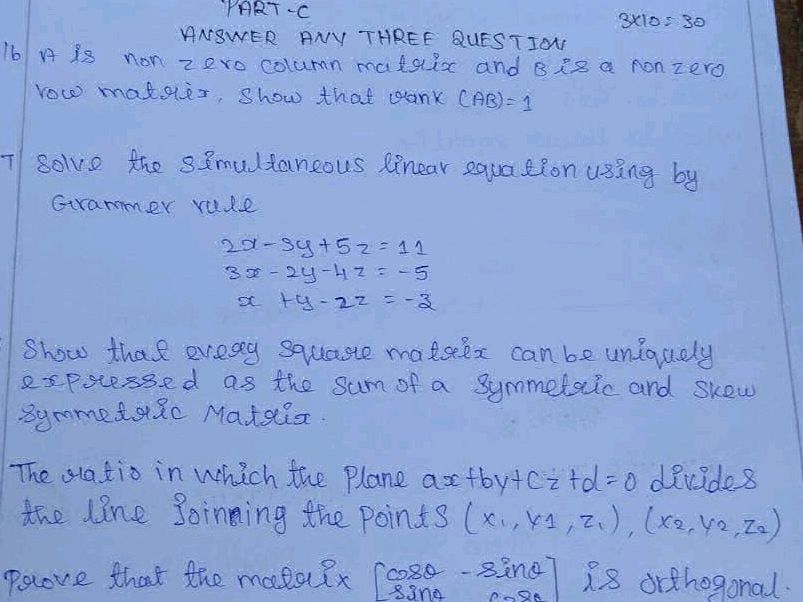 PART-C
3x10=30
ANSWER ANY THREE QUESTION
16 A is non zero column matrix and B is a non zero
row matrix, Show that rank (AB)=1
Solve the simultaneous linear equation using by
Grammer rule
2x-3y+5z=11
3x-2y-4z=-5
x+y-2z=-3
Show that every square matrix can be uniquely
expressed as the sum of a symmetric and skew
symmetric Matrix.
The ratio in which the plane ax+by+cz+d=0 divides
the line joinning the points (x1,y1,z1), (x2,y2,z2)
Prove that the matrix [cosθ -sinθ] is orthogonal.
sinθ cosθ